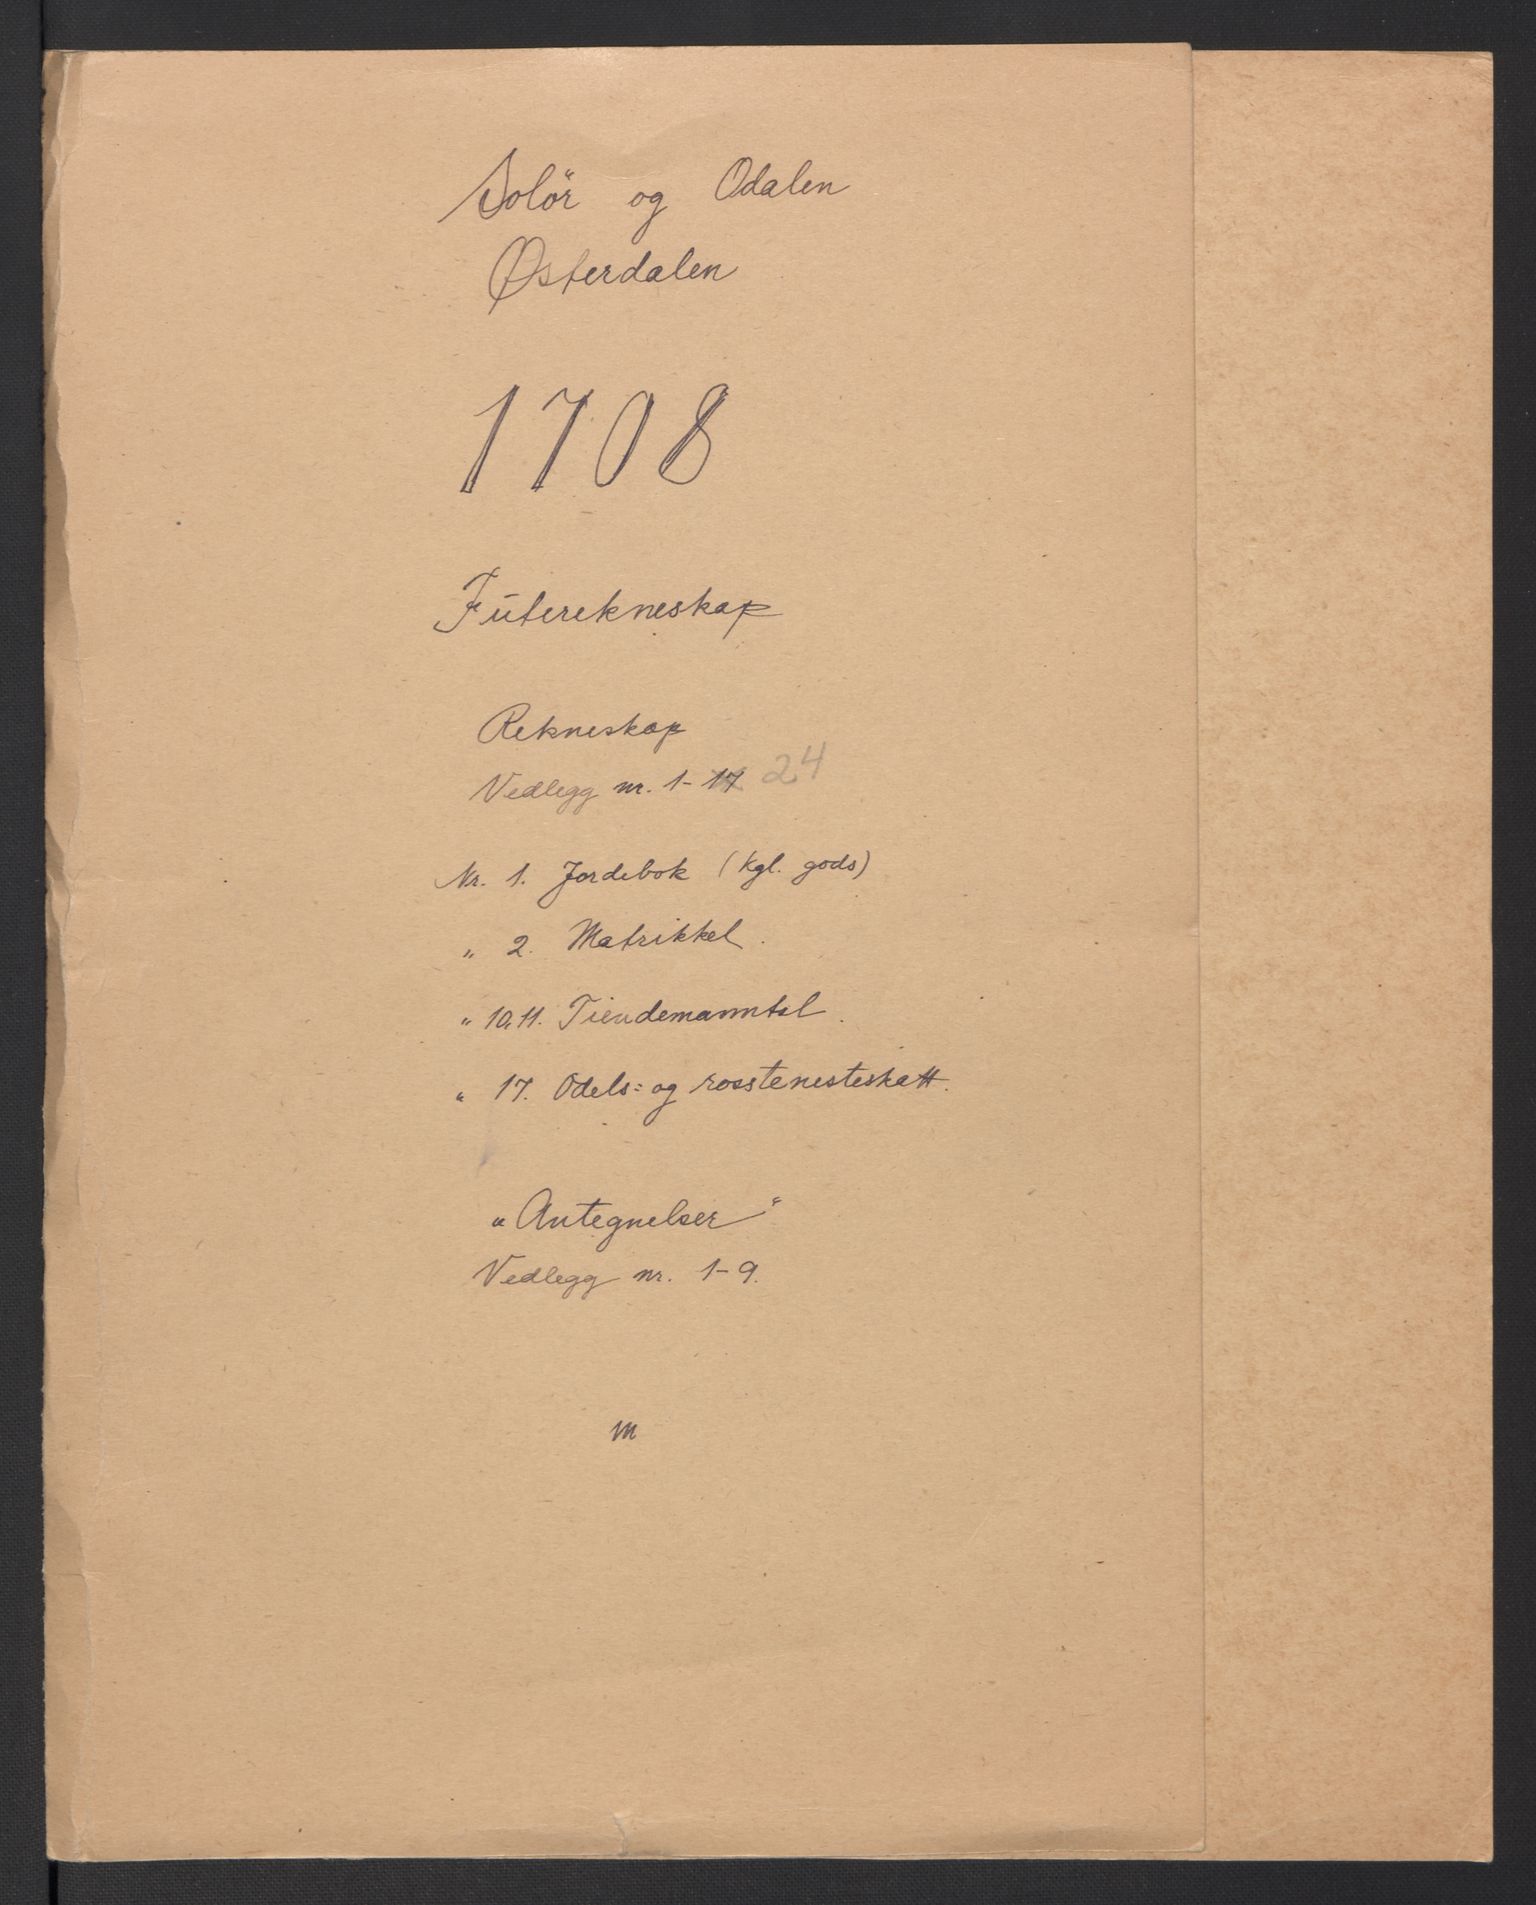 Solör og Odalen
Østerdalen
1708
Futerekneskap
Rekneskap
Vedlegg nr. 1-17 24
Nr. 1. Jordebok (Kgl. gods)
„ 2. Matrikkel.
„ 10,11. Tiendemanntal.
„ 17. Odels= og rosstenesteskatt.
„Antegnelser“
Vedlegg nr. 1-9.
m